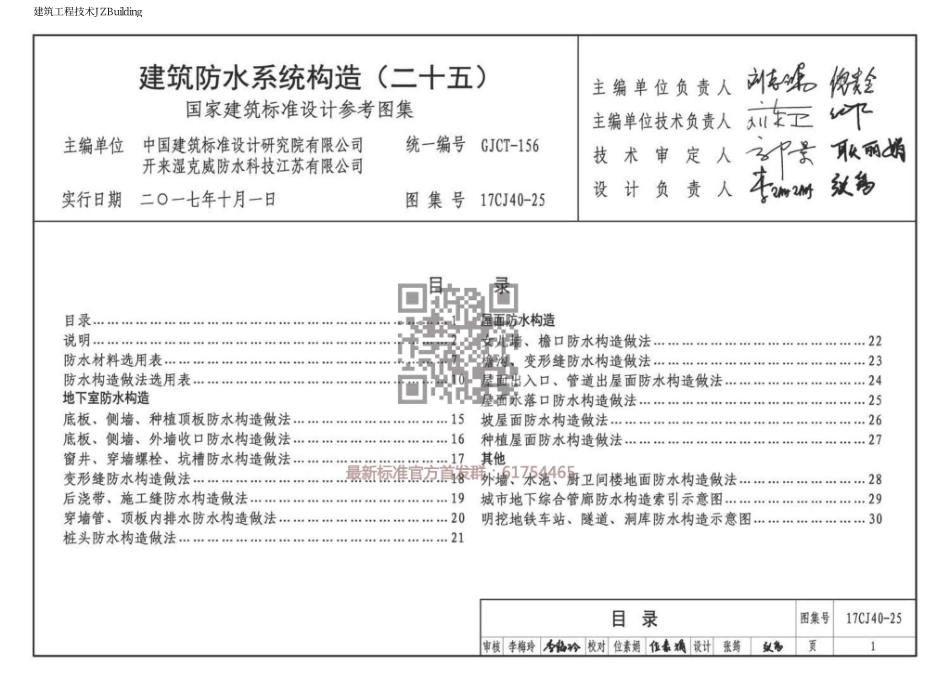 建筑工程技术JZBuilding
建筑防水系统构造（二十五）
国家建筑标准设计参考图集
主编单位 中国建筑标准设计研究院有限公司 统一编号 GJCT-156
开来湿克威防水科技江苏有限公司
实行日期 二〇一七年十月一日 图集号 17CJ40-25
主编单位负责人
主编单位技术负责人
技术审定人
设计负责人
目 录
目录……1
说明……2
防水材料选用表……7
防水构造做法选用表……10
地下室防水构造
底板、侧墙、种植顶板防水构造做法……15
底板、侧墙、外墙收口防水构造做法……16
窗井、穿墙螺栓、坑槽防水构造做法……17
变形缝防水构造做法……18
后浇带、施工缝防水构造做法……19
穿墙管、顶板内排水防水构造做法……20
桩头防水构造做法……21
屋面防水构造
女儿墙、檐口防水构造做法……22
檐沟、变形缝防水构造做法……23
屋面出入口、管道出屋面防水构造做法……24
屋面水落口防水构造做法……25
坡屋面防水构造做法……26
种植屋面防水构造做法……27
其他
外墙、水池、厨卫间楼地面防水构造做法……28
城市地下综合管廊防水构造索引示意图……29
明挖地铁车站、隧道、洞库防水构造示意图……30
最新标准官方首发群：61754465
目 录 图集号 17CJ40-25
审核 李梅玲 校对 位素娟 设计 张筠 页 1